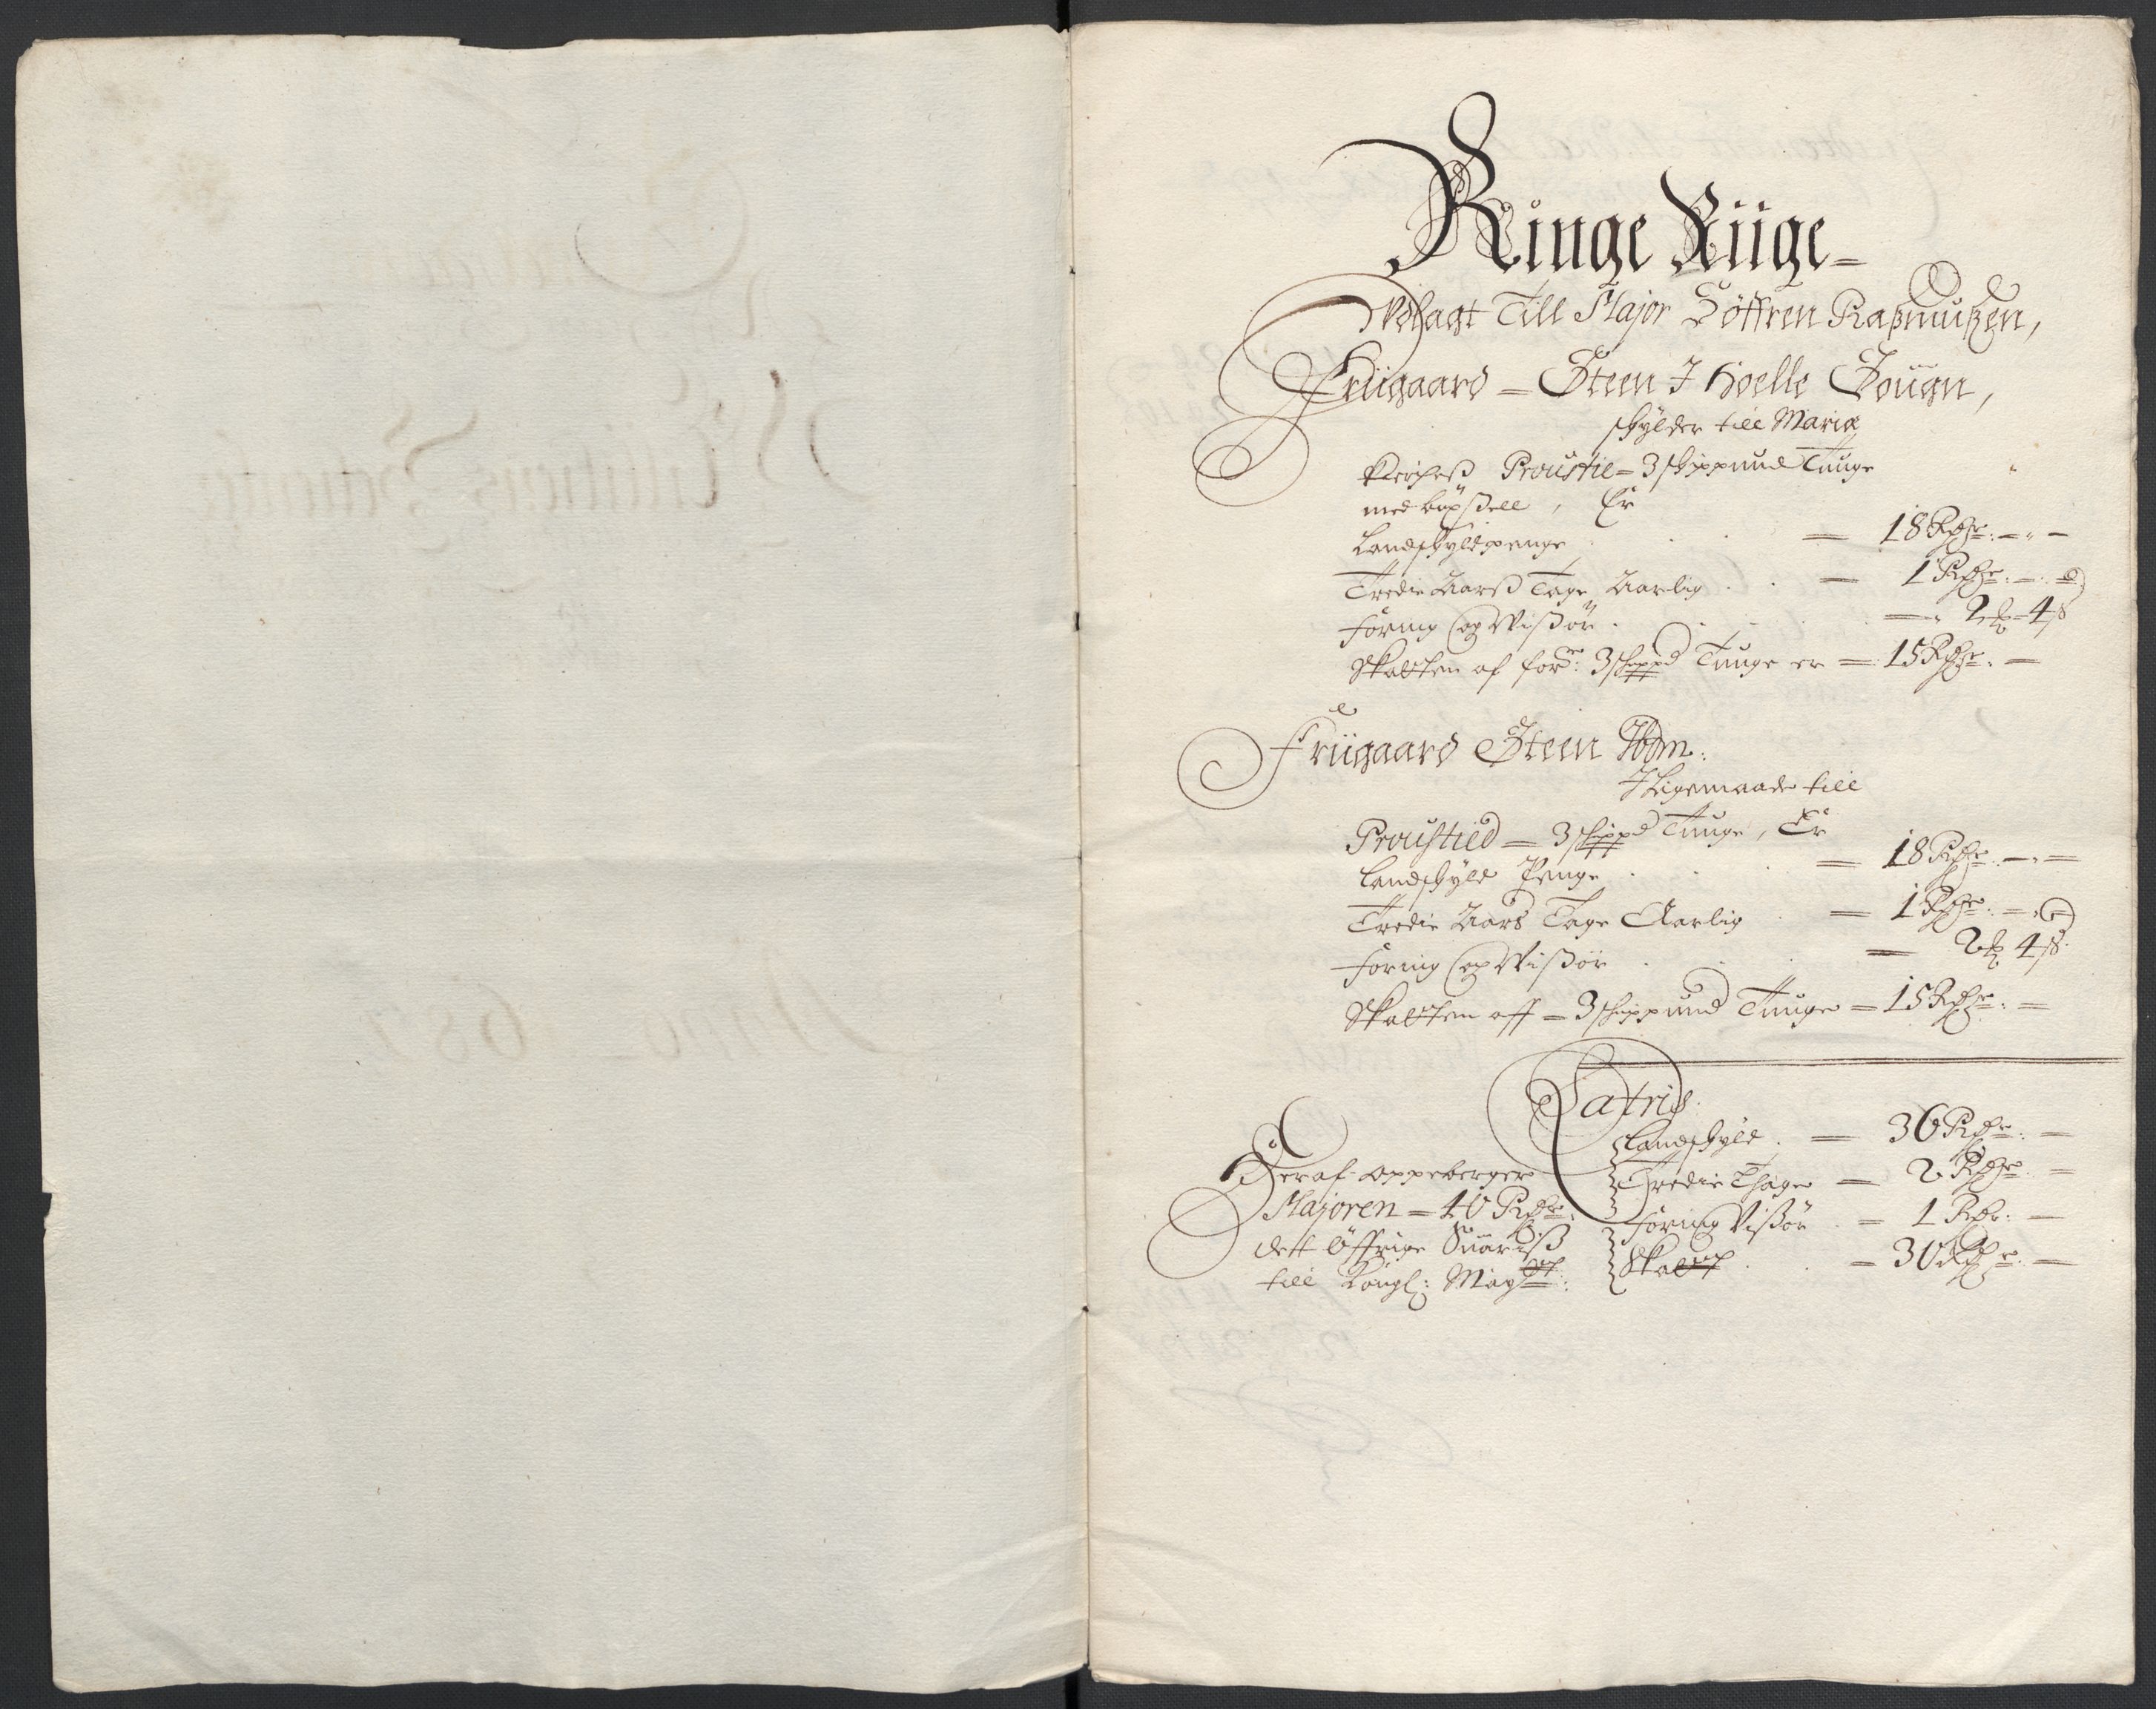 Ringe Riige =
Udlagt Till Major Söffren Raßmußen,
Friigaard = Steen J Hoelle Sougn,
schylder till Mariæ
Kircheß Proustie = 3 schippund Tunge
med böxßell, Er
Landschyldpenge = 18 Rdr: - " -
Tredie Aarß Tage Aarlig = 1 Rdr: - " -
Foring og Wißör = " 2 ℔ - 4 ß
Skatten af forne: 3 schippd Tunge er = 15 Rdr: -
Friigaard Steen Ibdm:
J Ligemaade till
Proustied = 3 schippd Tunge, Er
Landschyld Penge = 18 Rdr: - " -
Tredie Aars Tage Aarlig = 1 Rdr: - " -
Foring og Wißör = 2 ℔ 4 ß
Skatten aff = 3 schippund Tunge = 15 Rdr: =
Latris
Landschyld = 36 Rdr: -
Tredie Thage = 2 Rdr: -
Foring Wißör = 1 Rdr: -
Skatt = 30 Rdr: -
Heraf oppeberger
Majoren = 40 Rdr:
dett öffrige Suariß
till Kongl: Mayst: